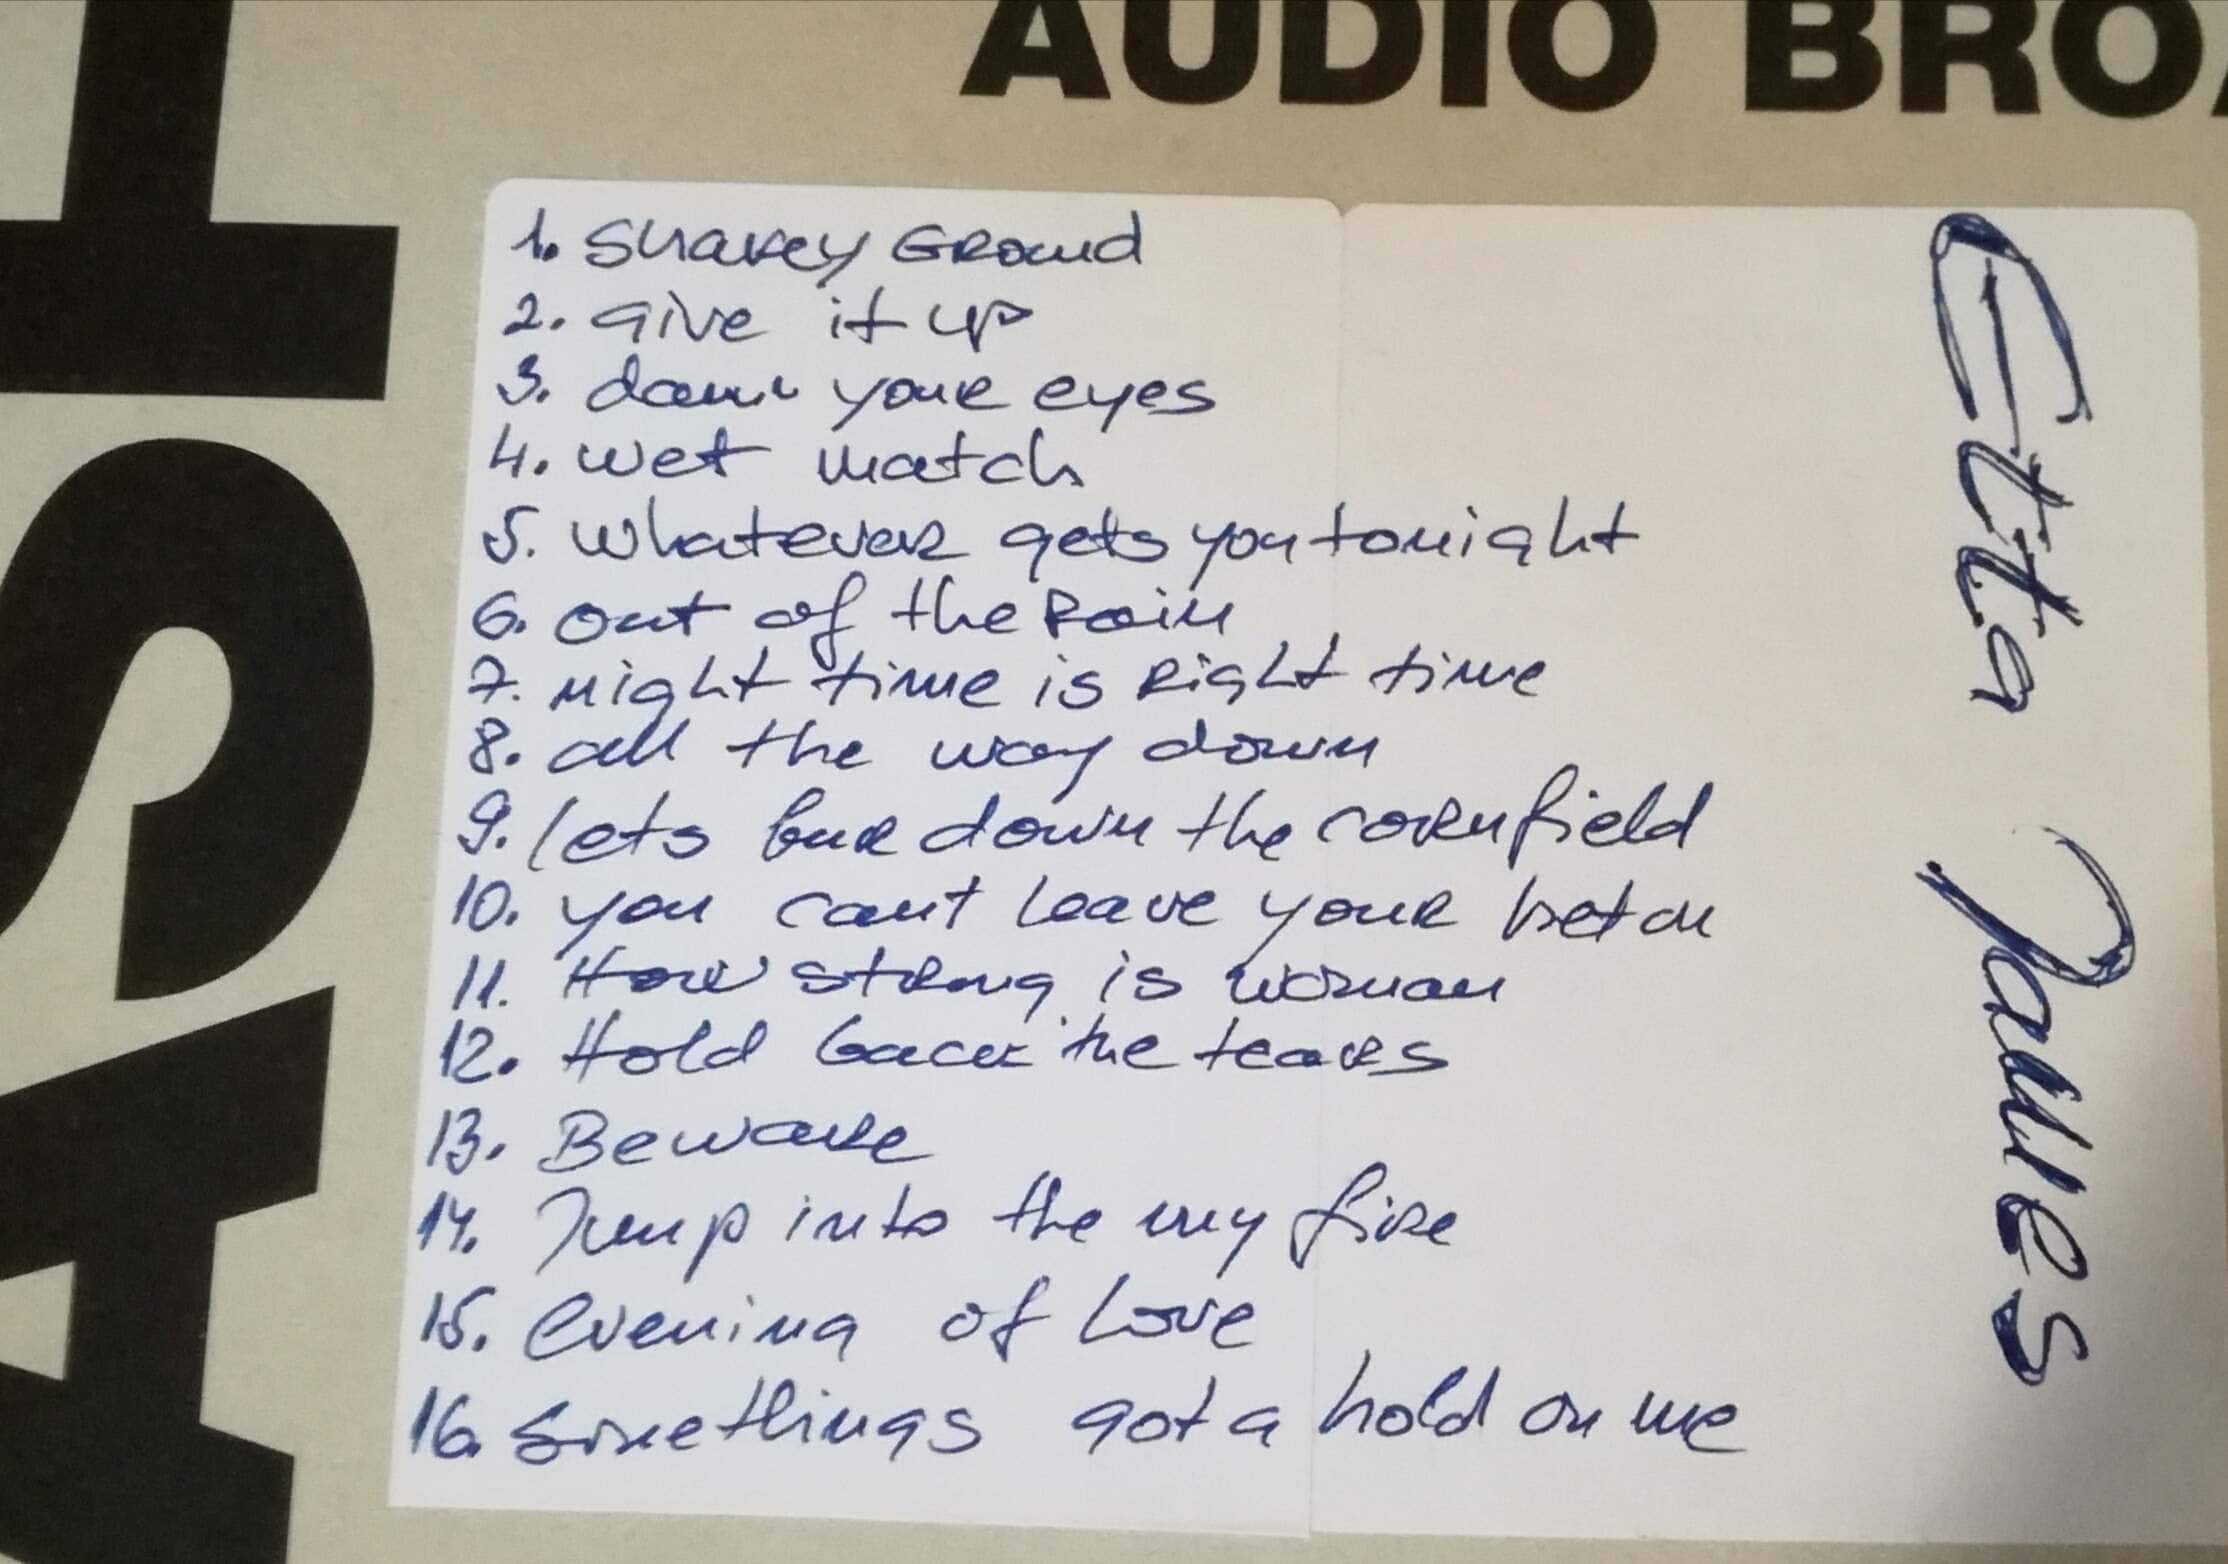 AUDIO BROA
AST
1. Shakey Ground
2. give it up
3. damn your eyes
4. wet match
5. whatever gets you tonight
6. out of the Rain
7. night time is Right time
8. all the way down
9. lets bur down the cornfield
10. you cant leave your het on
11. How strong is woman
12. Hold back the tears
13. Beware
14. Jump into the my fire
15. evening of Love
16. Somethings got a hold on me
Etta James